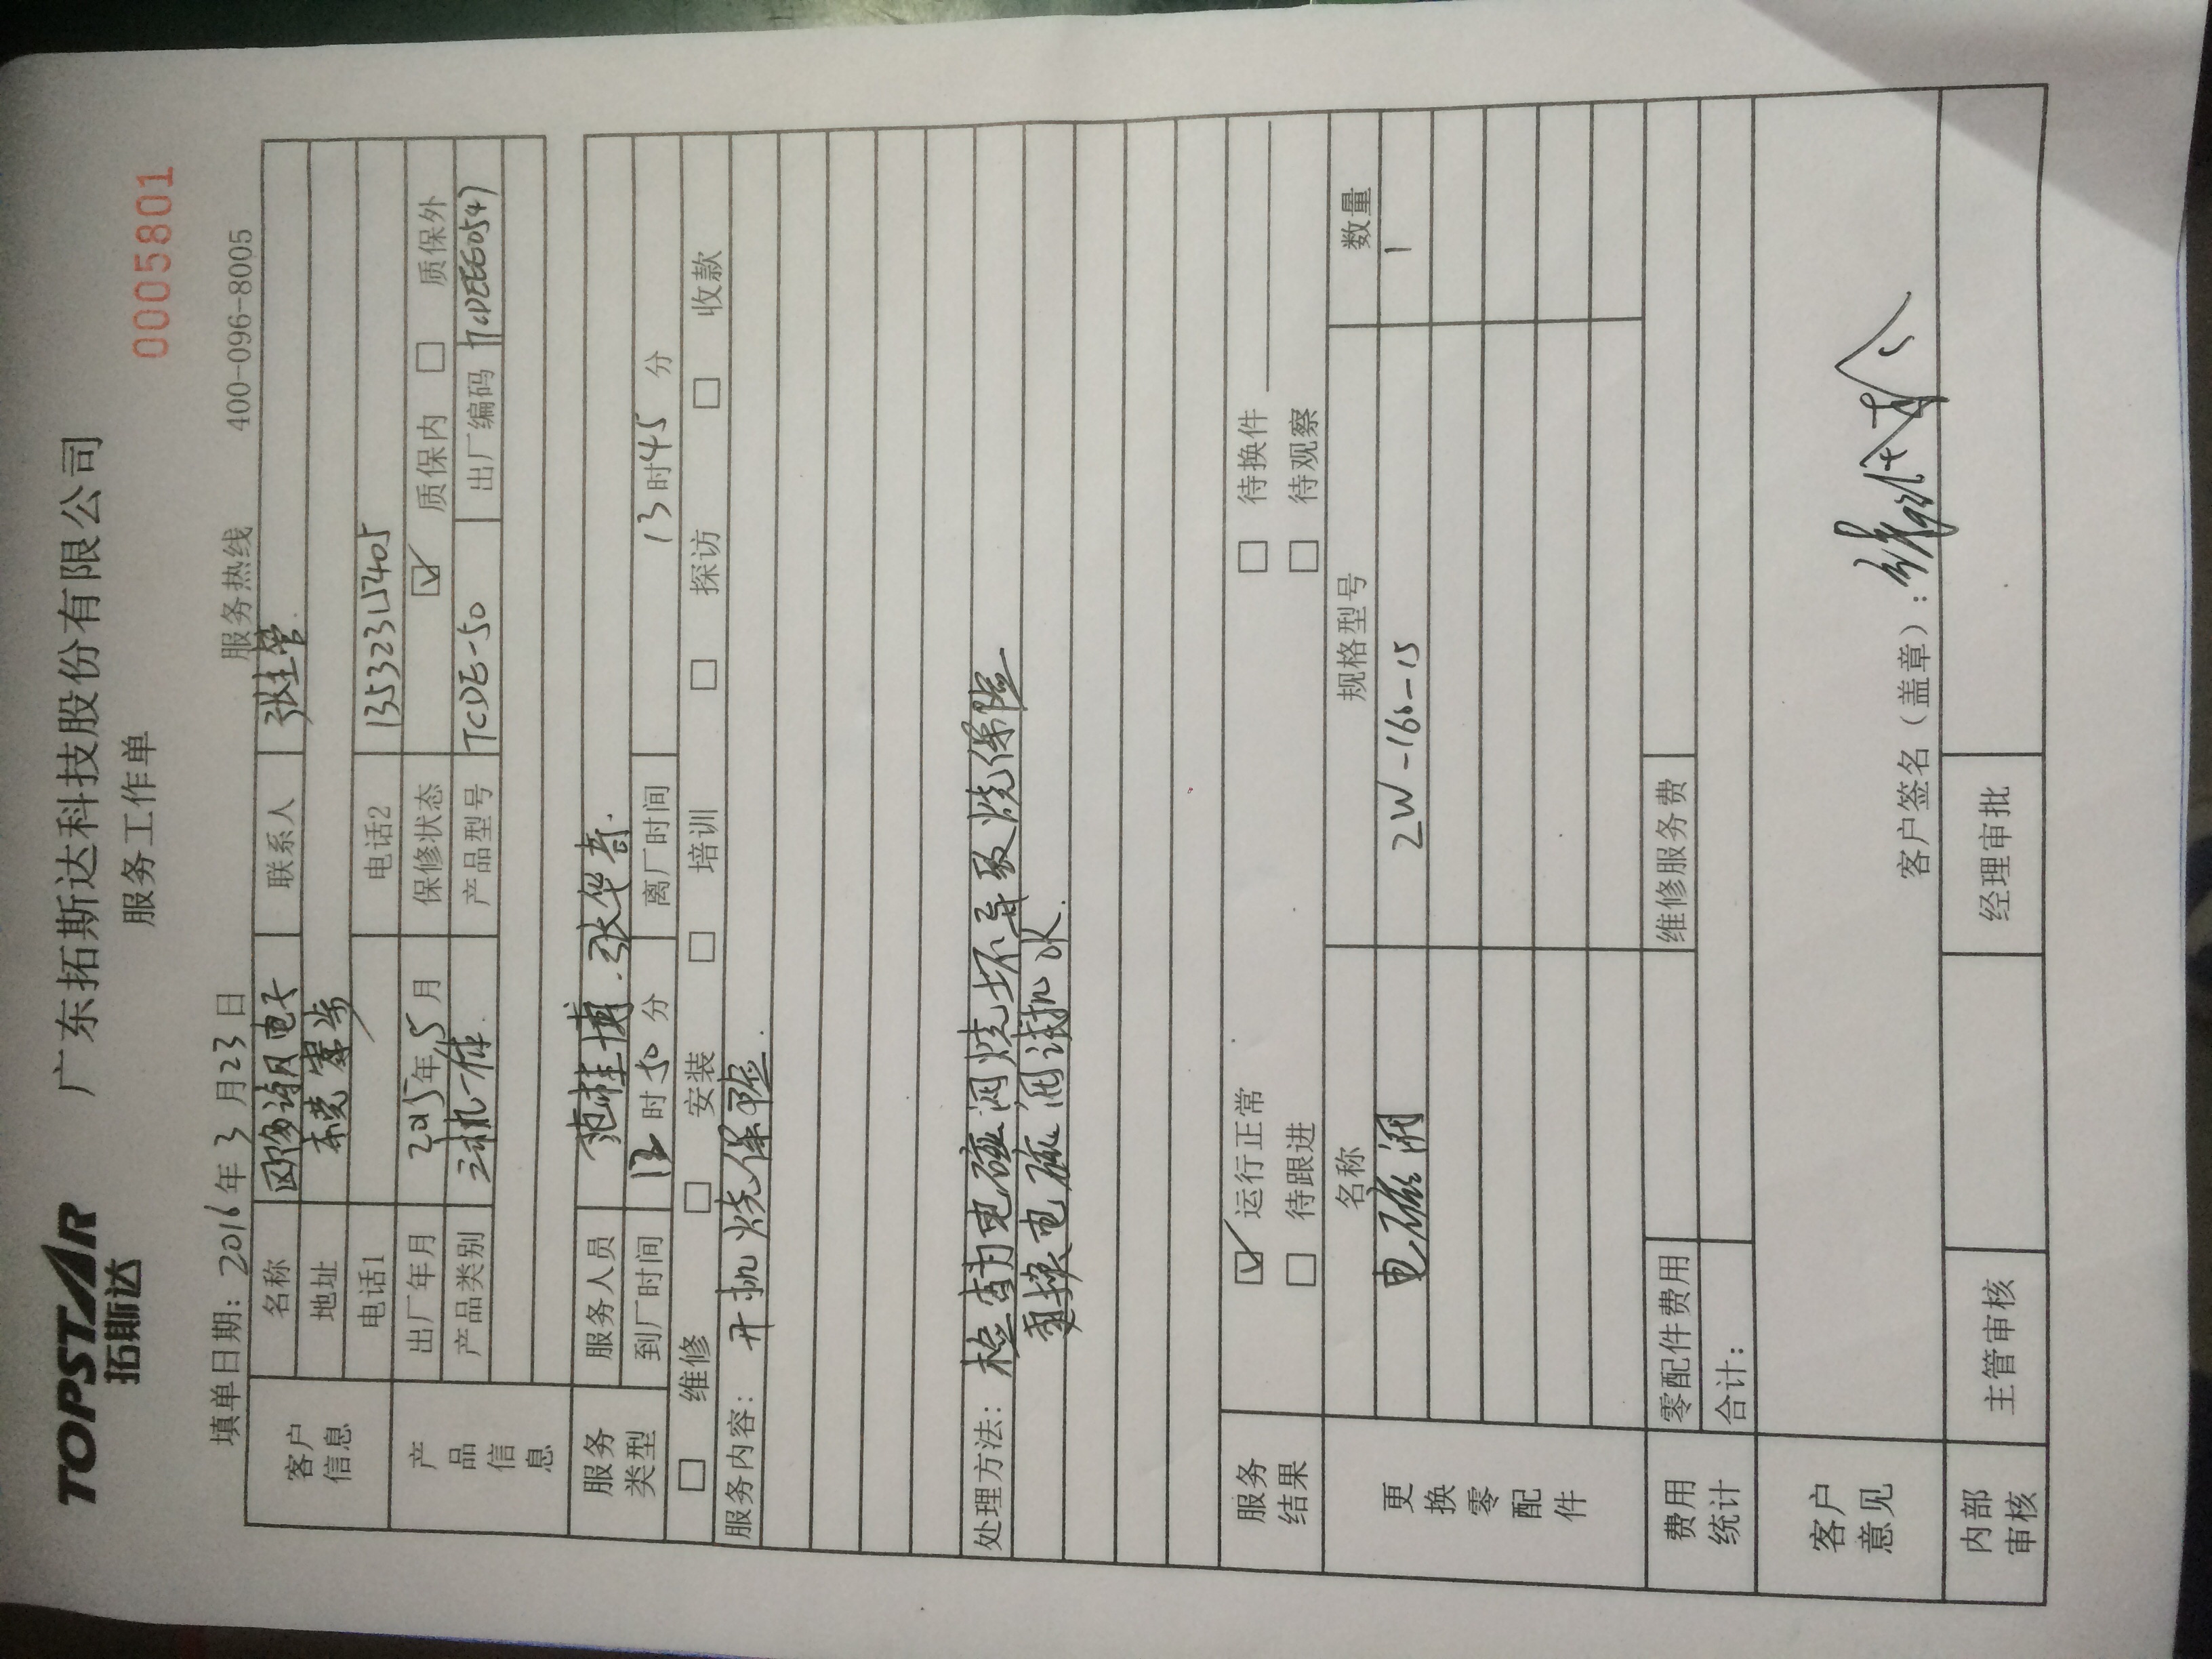 TOPSTAR 拓斯达 广东拓斯达科技股份有限公司
服务工作单 0005801
填单日期: 2016年3月23日 服务热线 400-096-8005
客户信息 名称 电子 联系人 张主管
地址 东莞寮步
电话1 电话2
产品信息 出厂年月 2015年5月 保修状态 ☑ 质保内 □ 质保外
产品类别 三机一体 产品型号 TCDE-50 出厂编码
服务类型 服务人员 范桂博.张华奇.
到厂时间 12时50分 离厂时间 13时45分
□ 维修 □ 安装 □ 培训 □ 探访 □ 收款
服务内容: 开机烧保险.
处理方法: 检查为电磁阀烧坏导致烧保险
更换电磁阀试机OK.
服务结果 ☑ 运行正常 □ 待换件
□ 待跟进 □ 待观察
更换零配件 名称 规格型号 数量
电磁阀 2W-160-15 1
费用统计 零配件费用 维修服务费
合计:
客户意见
客户签名(盖章):
内部审核 主管审核 经理审批